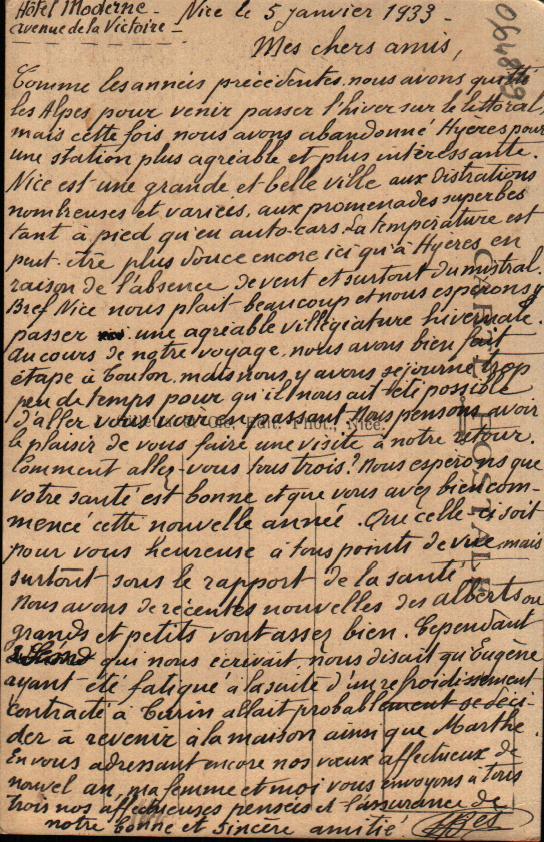 Hôtel Moderne - Nice le 5 janvier 1933 -
avenue de la Victoire -
Mes chers amis,
064889
Comme les années précédentes, nous avons quitté
les Alpes pour venir passer l'hiver sur le littoral,
mais cette fois nous avons abandonné Hyères pour
une station plus agréable et plus intéressante.
Nice est une grande et belle ville aux distrations
nombreuses et variées, aux promenades superbes
tant à pied qu'en auto-cars. La température est
peut-être plus douce encore ici qu'à Hyères en
raison de l'absence de vent et surtout du mistral.
Bref Nice nous plait beaucoup et nous espérons y
passer une agréable villégiature hivernale.
Au cours de notre voyage, nous avons bien fait
étape à Toulon, mais nous y avons séjourné trop
peu de temps pour qu'il nous ait été possible
d'aller vous voir en passant. Nous pensons avoir
Edit. Phot., Nice.
le plaisir de vous faire une visite à notre retour.
Comment allez-vous tous trois? Nous espérons que
votre santé est bonne et que vous avez bien com-
mencé cette nouvelle année. Que celle-ci soit
pour vous heureuse à tous points de vue, mais
surtout sous le rapport de la santé.
Nous avons de récentes nouvelles des Alberts ou
grands et petits vont assez bien. Cependant
qui nous écrivait, nous disait qu'Eugène
ayant été fatigué à la suite d'un refroidissement
contracté à Turin allait probablement se déci-
der à revenir à la maison ainsi que Marthe.
En vous adressant encore nos vœux affectueux de
nouvel an, ma femme et moi vous envoyons à tous
trois nos affectueuses pensées et l'assurance de
notre bonne et sincère amitié.
CARTE POSTALE